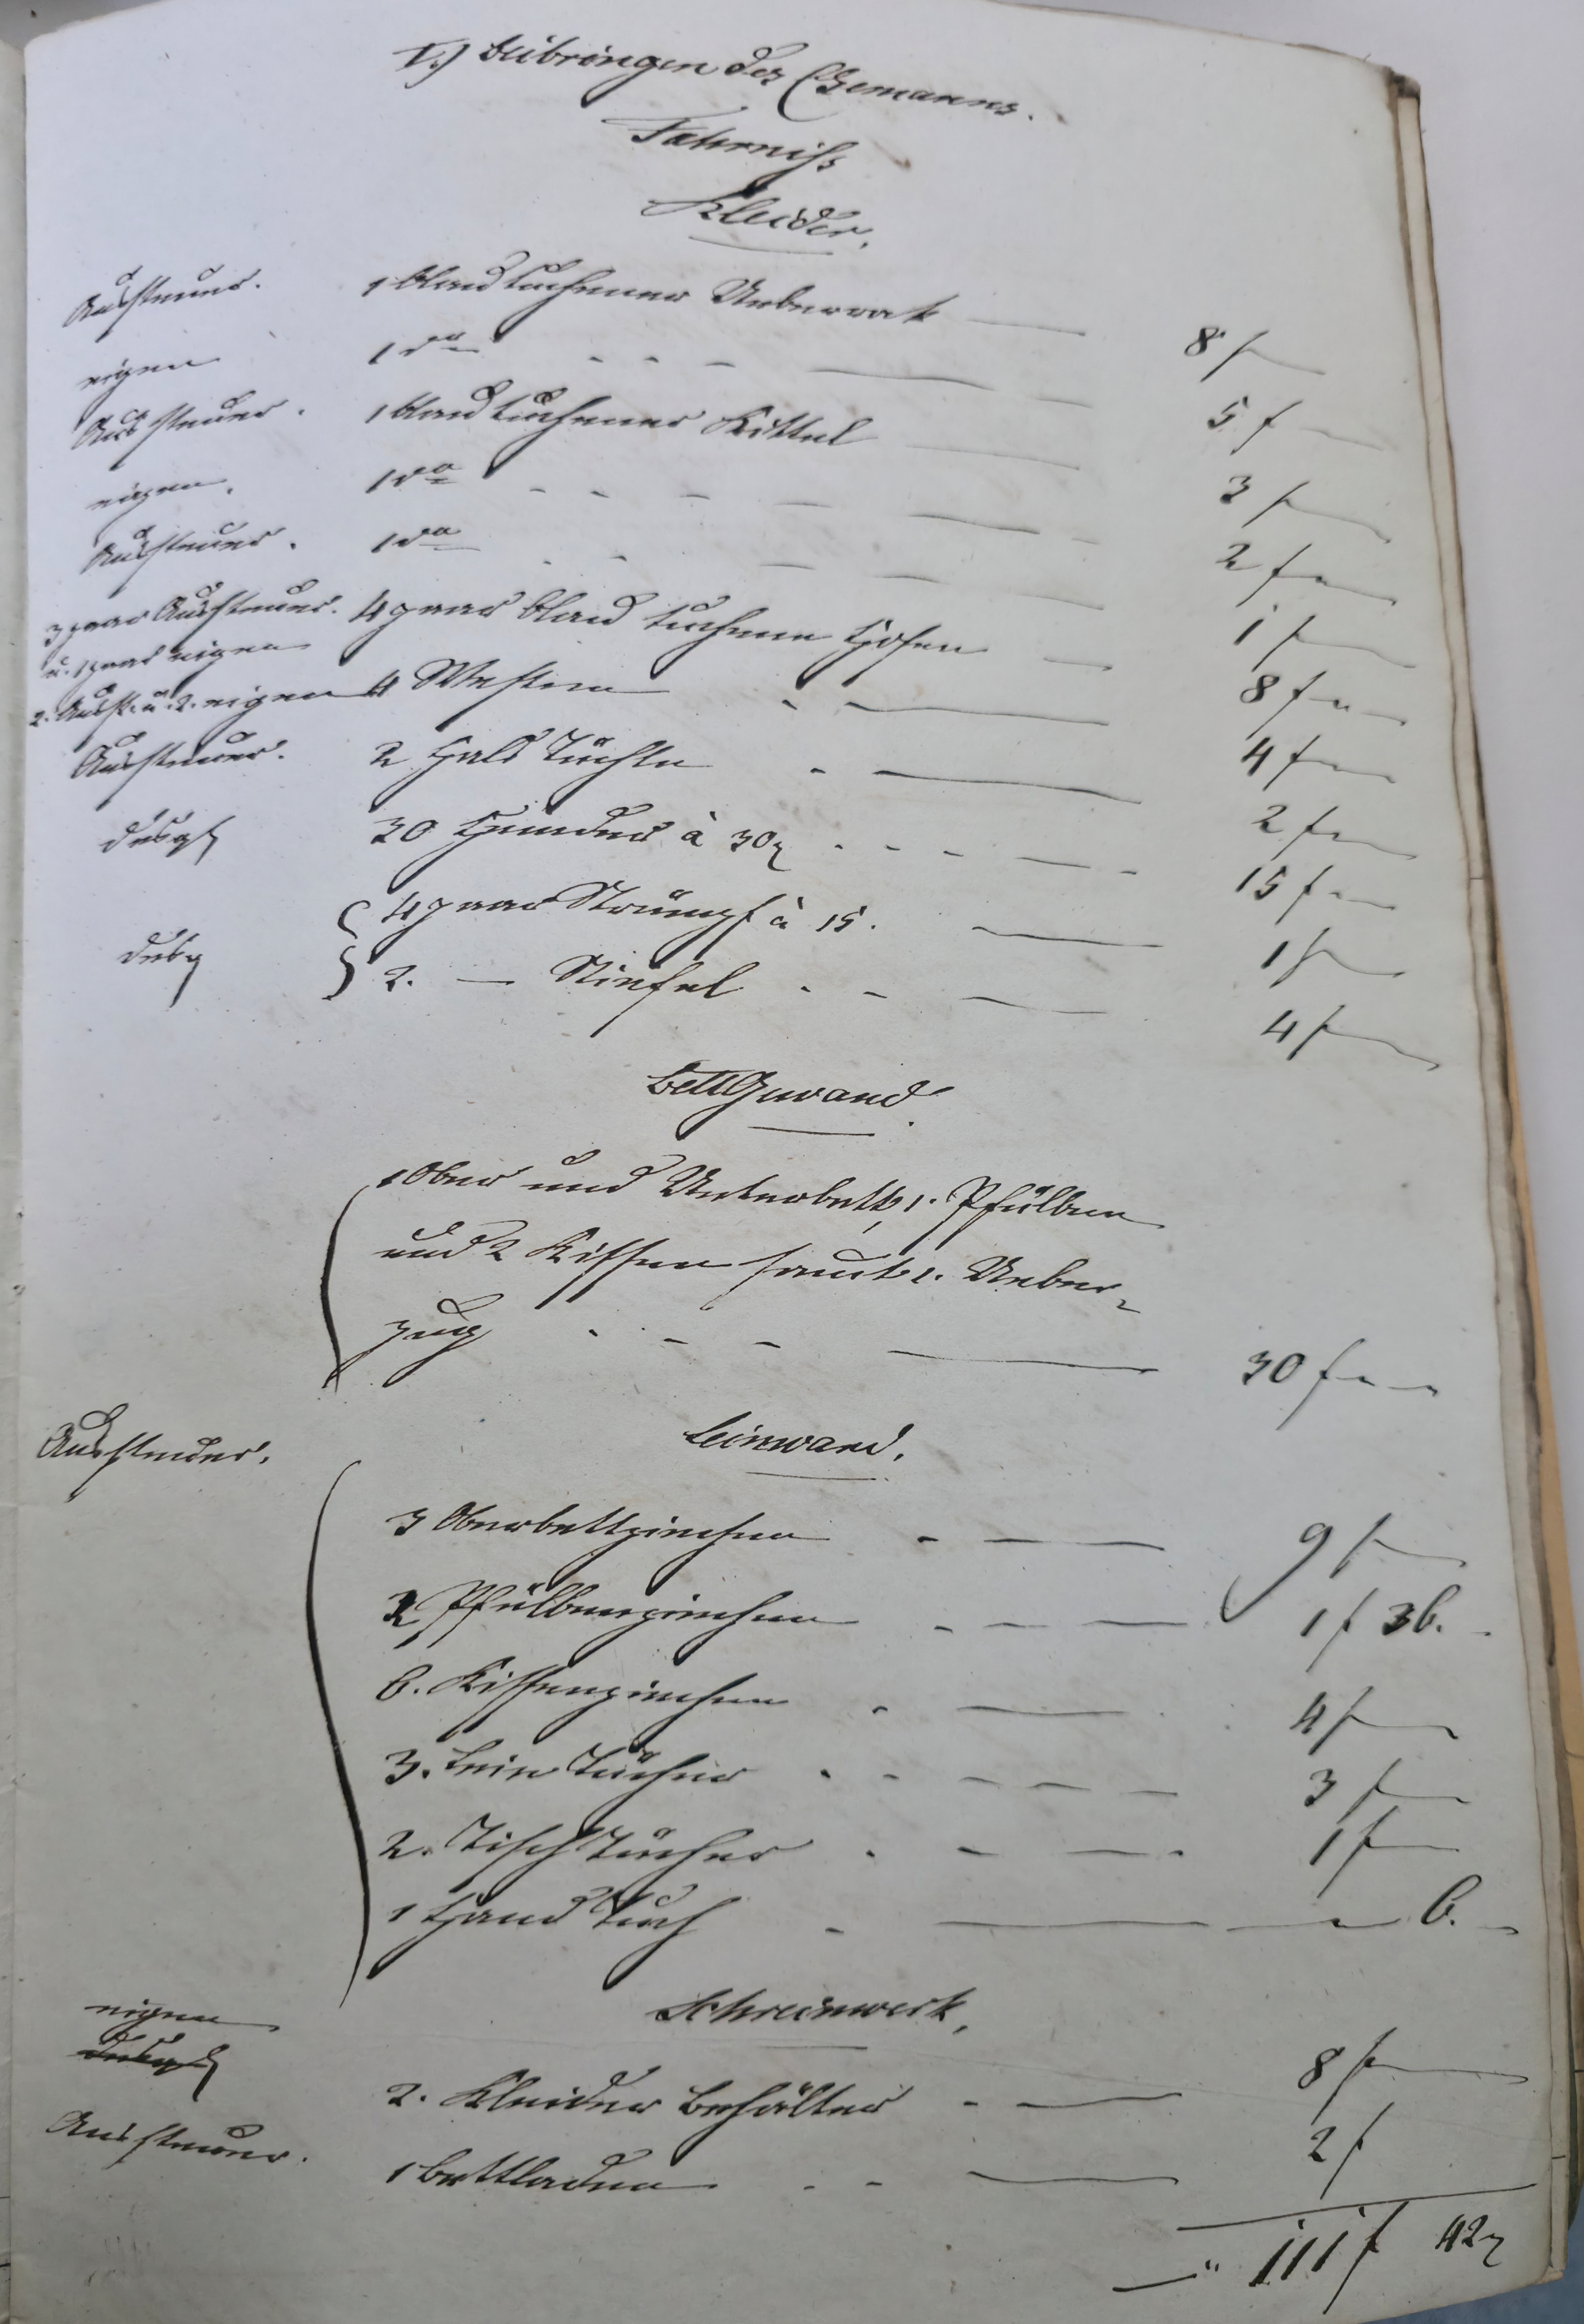 I.) Beibringen des Ehemanns.
Fahrniß
Kleider.
Aussteuer. 1 blau tuchener Ueberrok — 8 f —
eigen 1 do - - - — 5 f —
Aussteuer. 1 blau tuchener Kittel — 3 f —
eigen. 1 do - - - — 2 f —
Aussteuer. 1 do - - — 1 f —
3 paar Aussteuer. 4 paar blau tuchene Hosen — 8 f —
u. 1 paar eigen
2. Ausst. u. 2. eigen 4 Westen - — 4 f —
Aussteuer. 2 Hals Tüchle - — 2 f —
desgl 30 Hemder à 30x - - - — 15 f —
desgl { 4 paar Strümpf à 15. — 1 f —
2. — Stiefel - - — 4 f —
BettGewand.
1 Ober und Unterbett, 1. Pfülben
und 2 Kissen samt 1. Ueber-
zug - - - — 30 f —
Aussteuer.
Leinwand.
3 Oberbettziechen - — 9 f —
2 Pfülbenziechen - — 1 f 36. -
6. Kissenziechen - — 4 f —
3. Lein Tücher - - — 3 f —
2. Tisch Tücher - — 1 f —
1 Hand Tuch - — 6. -
Schreinwerk.
eigen
desgl
2. Kleider Behälter - — 8 f —
Aussteuer. 1 Bettladen - - — 2 f
—" 111 f 42x